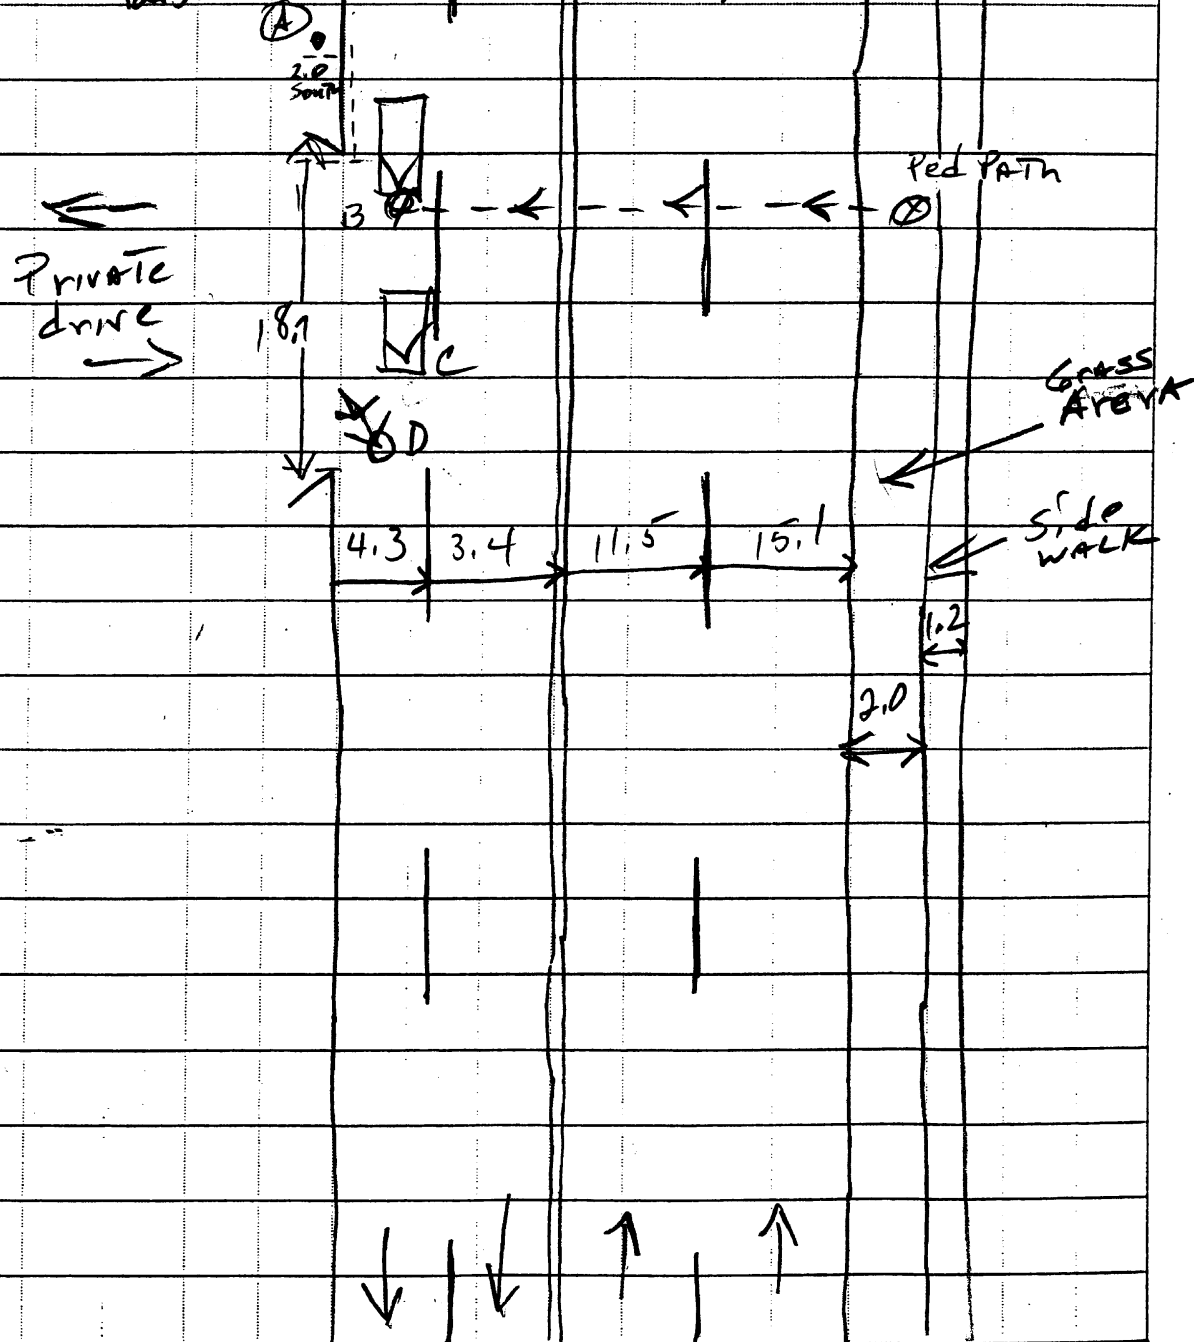 A
2.0
South
Ped PATH
B
Private
drive
18.1
C
Grass
Arera
D
Side
WALK
4.3
3.4
11.5
15.1
1.2
2.0